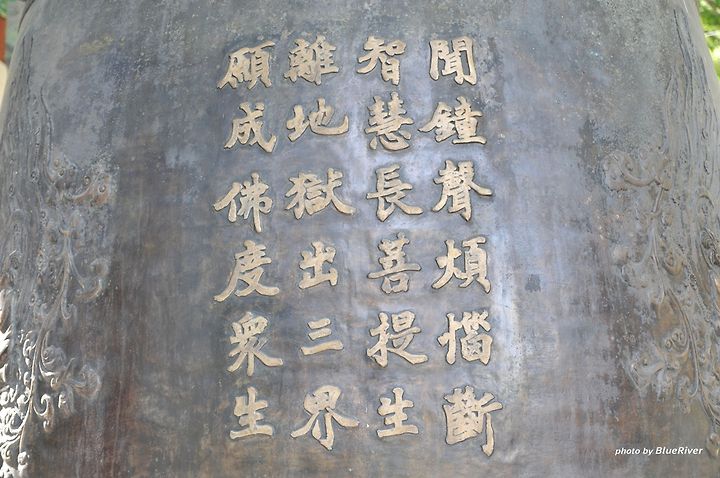 聞鐘聲煩惱斷
智慧長菩提生
離地獄出三界
願成佛度衆生
photo by BlueRiver